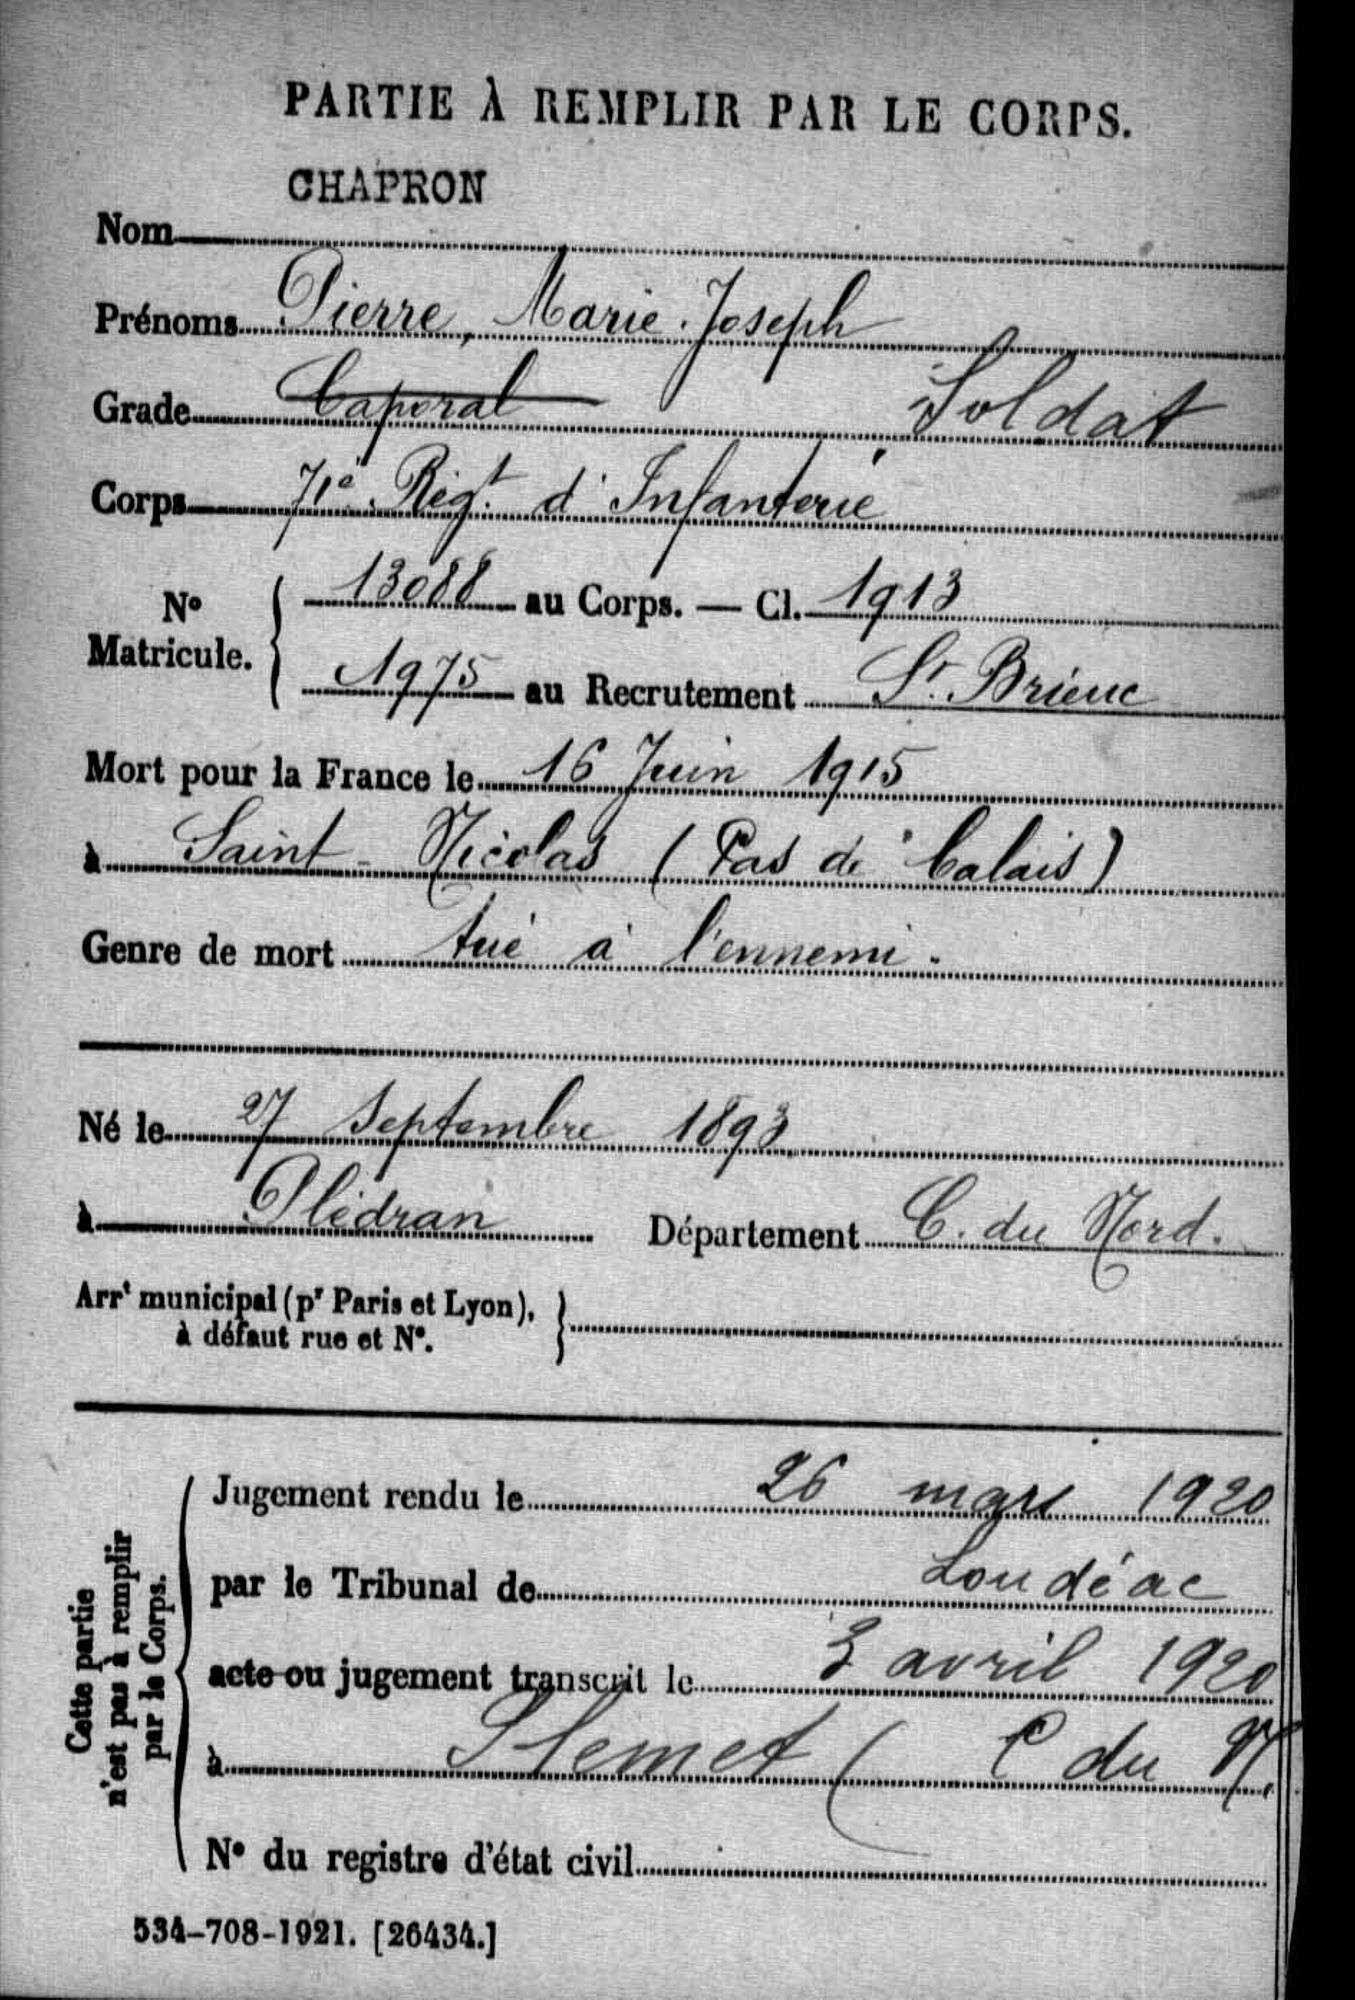 PARTIE À REMPLIR PAR LE CORPS.
CHAPRON
Nom
Prénoms Pierre, Marie. Joseph
Grade Caporal Soldat
Corps 71e Régt d'Infanterie
No Matricule. { 13088 au Corps. — Cl. 1913
1975 au Recrutement St. Brieuc
Mort pour la France le 16 Juin 1915
à Saint-Nicolas (Pas de Calais)
Genre de mort tué à l'ennemi.
Né le 27 Septembre 1893
à Plédran Département C. du Nord.
Arrt municipal (pr Paris et Lyon),
à défaut rue et No. }
Cette partie
n'est pas à remplir
par le Corps.
Jugement rendu le 26 mars 1920
par le Tribunal de Loudéac
acte ou jugement transcrit le 3 avril 1920
à Plemet ( C du N.
No du registre d'état civil
534-708-1921. [26434.]